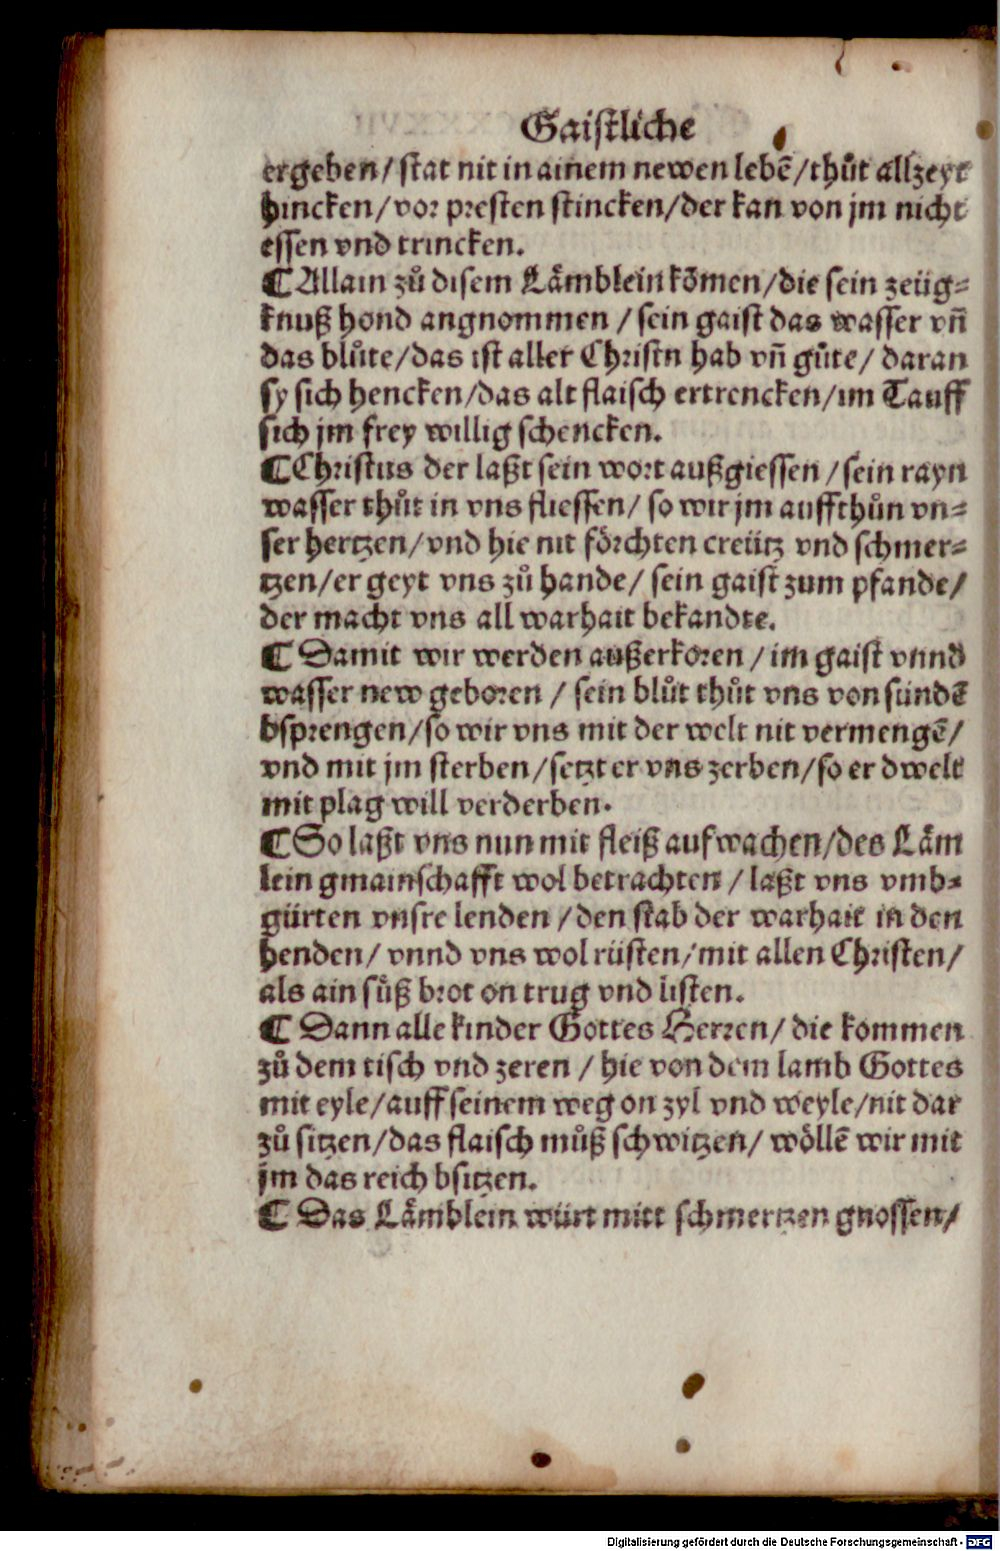 Gaistliche
ergeben/ stat nit in ainem newen lebẽ/ thůt allzeyt
hincken/ vor presten stincken/ der kan von jm nicht
essen vnd trincken.
¶ Allain zů disem Lämblein kõmen/ die sein zeüg⸗
knuß hond angnommen / sein gaist das wasser vñ
das blůte/ das ist aller Christn hab vñ gůte/ daran
sy sich hencken/ das alt flaisch ertrencken/ im Tauff
sich jm frey willig schencken.
¶ Christus der laßt sein wort außgiessen / sein rayn
wasser thůt in vns fliessen/ so wir jm auffthůn vn⸗
ser hertzen/ vnd hie nit förchten creütz vnd schmer⸗
tzen/ er geyt vns zů hande/ sein gaist zum pfande/
der macht vns all warhait bekandte.
¶ Damit wir werden außerkoren / im gaist vnnd
wasser new geboren / sein blůt thůt vns von sündẽ
bsprengen/ so wir vns mit der welt nit vermengẽ/
vnd mit jm sterben/ setzt er vns zerben/ so er dwelt
mit plag will verderben.
¶ So laßt vns nun mit fleiß aufwachen/ des Läm
lein gmainschafft wol betrachten / laßt vns vmb⸗
gürten vnsre lenden / den stab der warhait in den
henden/ vnnd vns wol rüsten/ mit allen Christen/
als ain sůß brot on trug vnd listen.
¶ Dann alle kinder Gottes Herren/ die kommen
zů dem tisch vnd zeren / hie von dem lamb Gottes
mit eyle/ auff seinem weg on zyl vnd weyle/ nit dar
zů sitzen/ das flaisch můß schwitzen/ wöllẽ wir mit
jm das reich bsitzen.
¶ Das Lämblein würt mitt schmertzen gnossen/
Digitalisierung gefördert durch die Deutsche Forschungsgemeinschaft - DFG